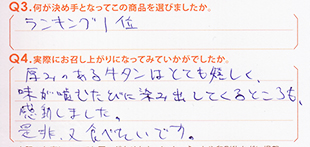 Q3.何が決め手となってこの商品を選びましたか。
ランキング1位
Q4.実際にお召し上がりになってみていかがでしたか。
厚みのある牛タンはとても嬉しく、
味が噛むたびに染み出してくるところも、
感動しました。
是非、又食べたいです。